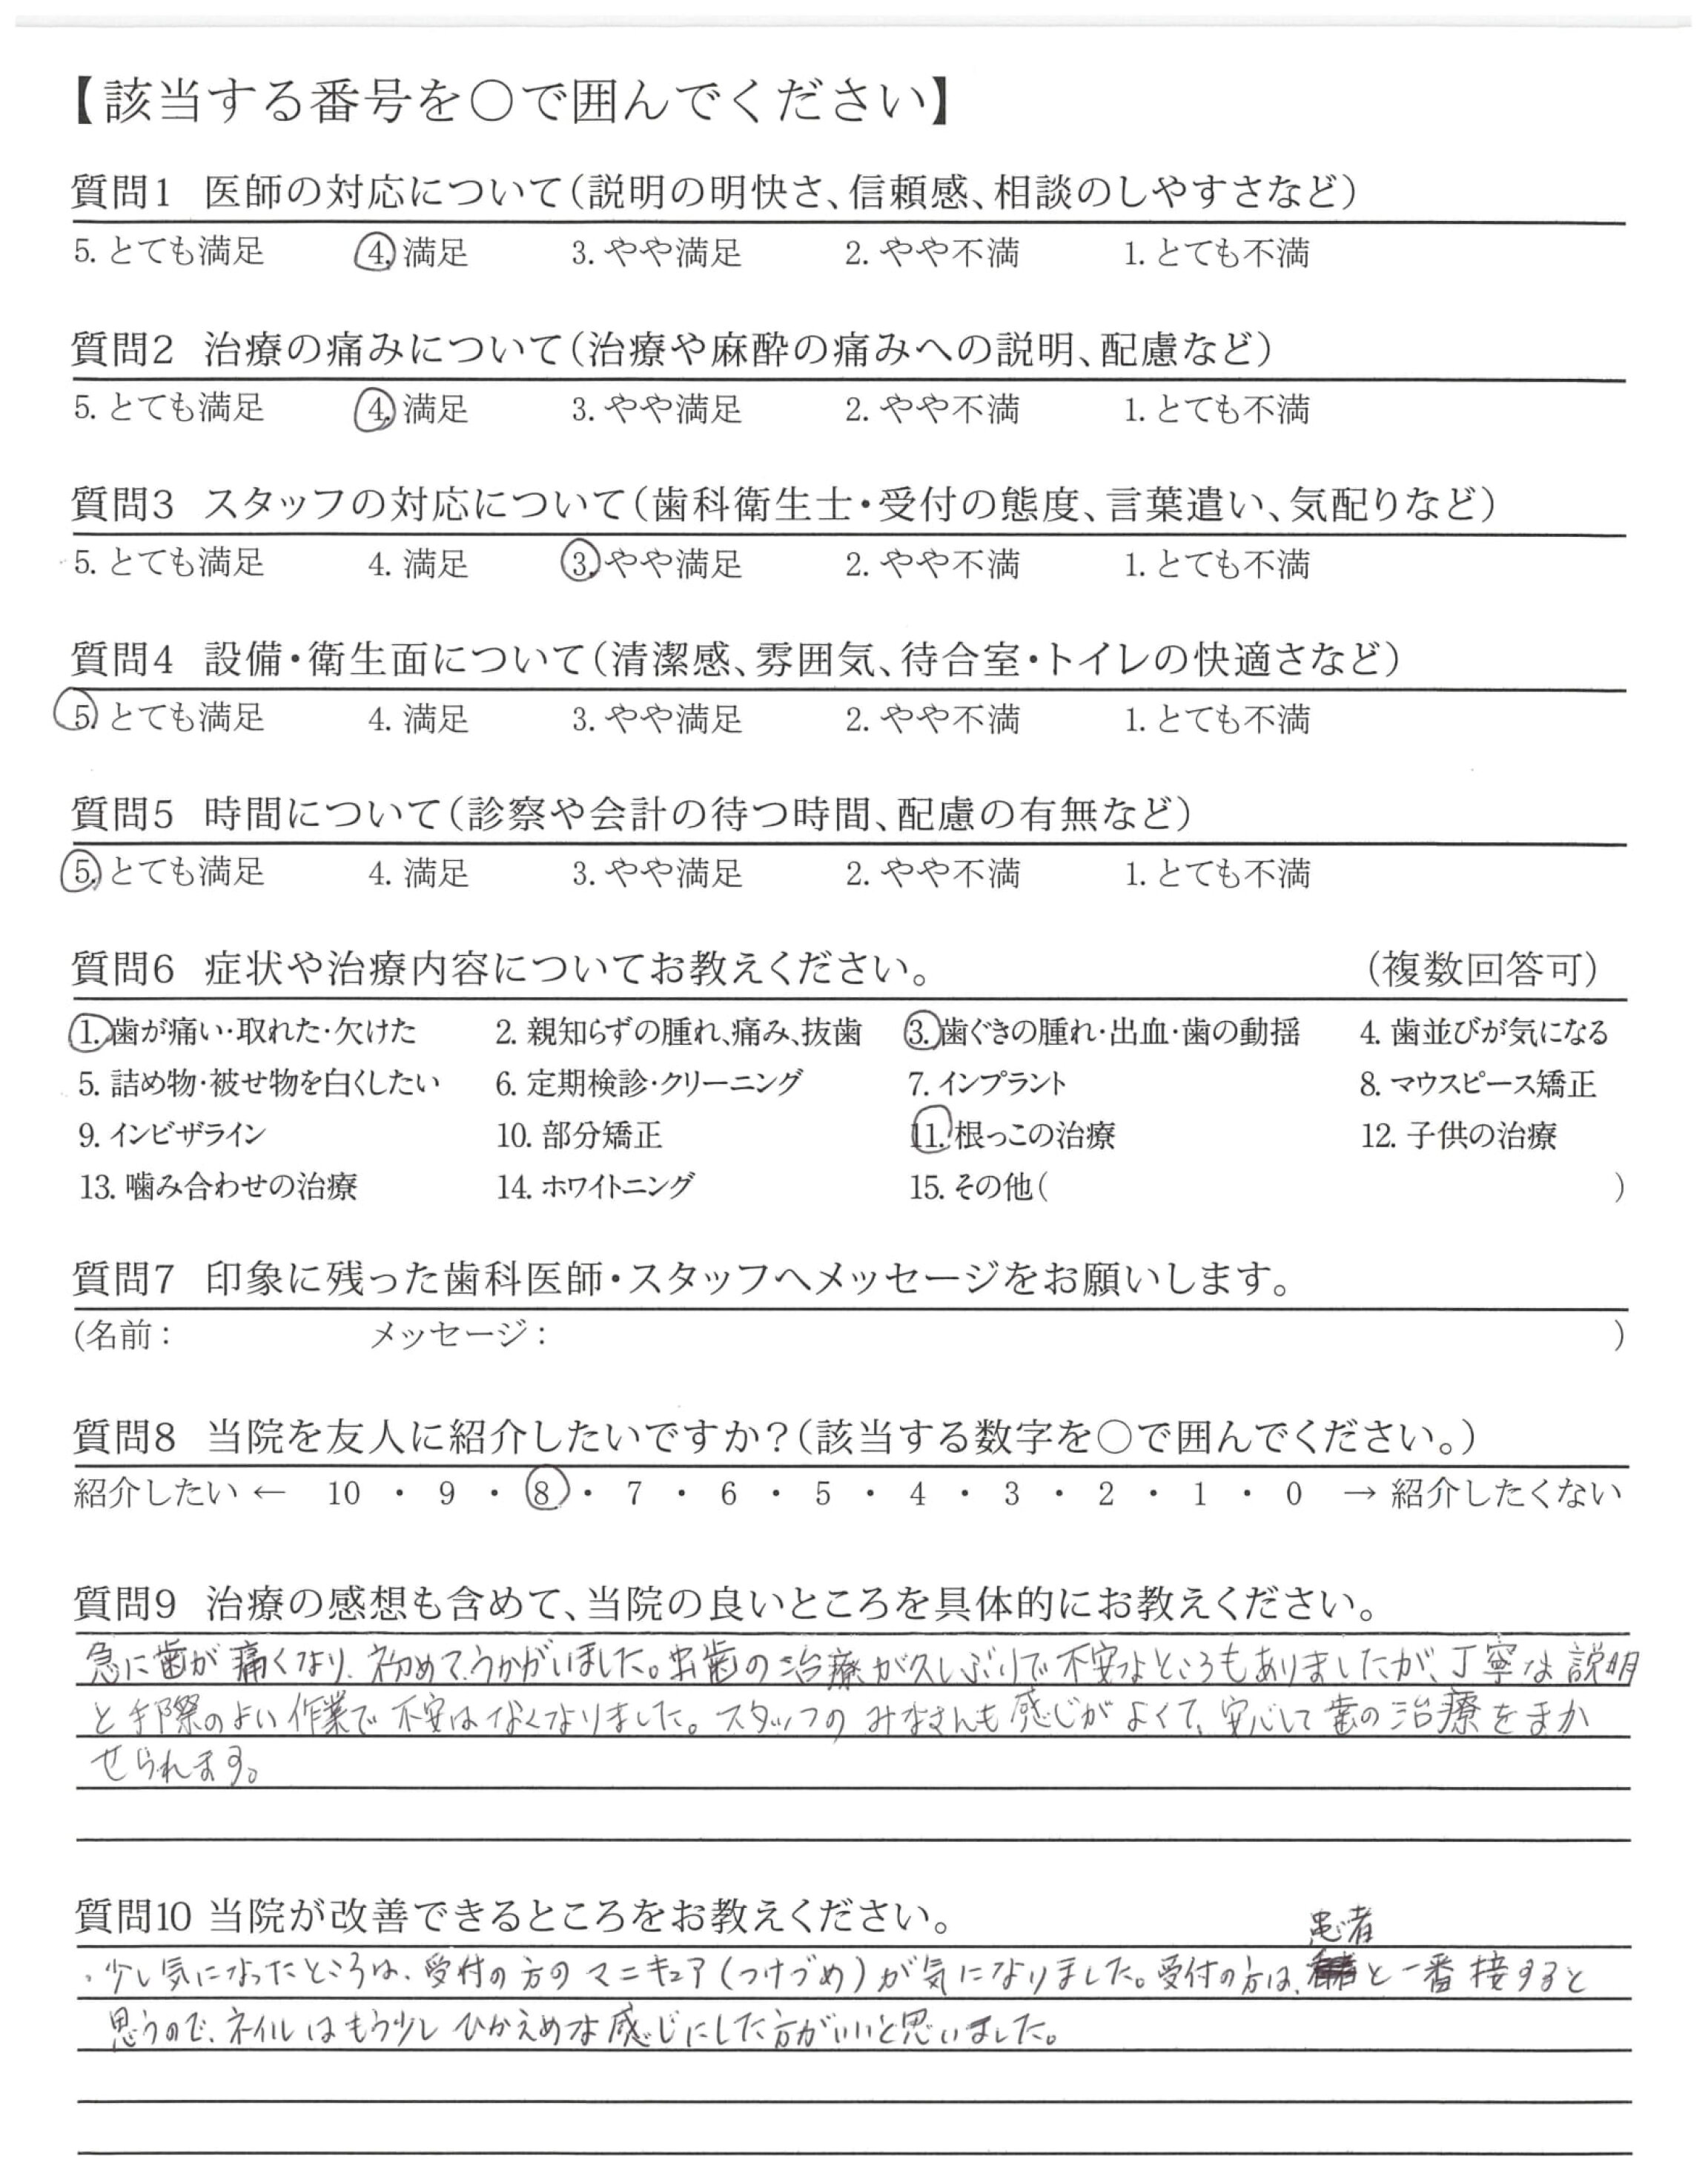 【該当する番号を○で囲んでください】
質問1 医師の対応について(説明の明快さ、信頼感、相談のしやすさなど)
5. とても満足 4. 満足 3. やや満足 2. やや不満 1. とても不満
質問2 治療の痛みについて(治療や麻酔の痛みへの説明、配慮など)
5. とても満足 4. 満足 3. やや満足 2. やや不満 1. とても不満
質問3 スタッフの対応について(歯科衛生士・受付の態度、言葉遣い、気配りなど)
5. とても満足 4. 満足 3. やや満足 2. やや不満 1. とても不満
質問4 設備・衛生面について(清潔感、雰囲気、待合室・トイレの快適さなど)
5. とても満足 4. 満足 3. やや満足 2. やや不満 1. とても不満
質問5 時間について(診察や会計の待つ時間、配慮の有無など)
5. とても満足 4. 満足 3. やや満足 2. やや不満 1. とても不満
質問6 症状や治療内容についてお教えください。 (複数回答可)
1. 歯が痛い・取れた・欠けた 2. 親知らずの腫れ、痛み、抜歯 3. 歯ぐきの腫れ・出血・歯の動揺 4. 歯並びが気になる
5. 詰め物・被せ物を白くしたい 6. 定期検診・クリーニング 7. インプラント 8. マウスピース矯正
9. インビザライン 10. 部分矯正 11. 根っこの治療 12. 子供の治療
13. 噛み合わせの治療 14. ホワイトニング 15. その他( )
質問7 印象に残った歯科医師・スタッフへメッセージをお願いします。
(名前: メッセージ: )
質問8 当院を友人に紹介したいですか?(該当する数字を○で囲んでください。)
紹介したい ← 10 ・ 9 ・ 8 ・ 7 ・ 6 ・ 5 ・ 4 ・ 3 ・ 2 ・ 1 ・ 0 → 紹介したくない
質問9 治療の感想も含めて、当院の良いところを具体的にお教えください。
急に歯が痛くなり、初めてうかがいました。虫歯の治療が久しぶりで不安なところもありましたが、丁寧な説明
と手際のよい作業で不安はなくなりました。スタッフのみなさんも感じがよくて、安心して歯の治療をまか
せられます。
質問10 当院が改善できるところをお教えください。
・少し気になったところは、受付の方のマニキュア(つけづめ)が気になりました。受付の方は、患者と一番接すると
思うので、ネイルはもう少しひかえめな感じにした方がいいと思いました。